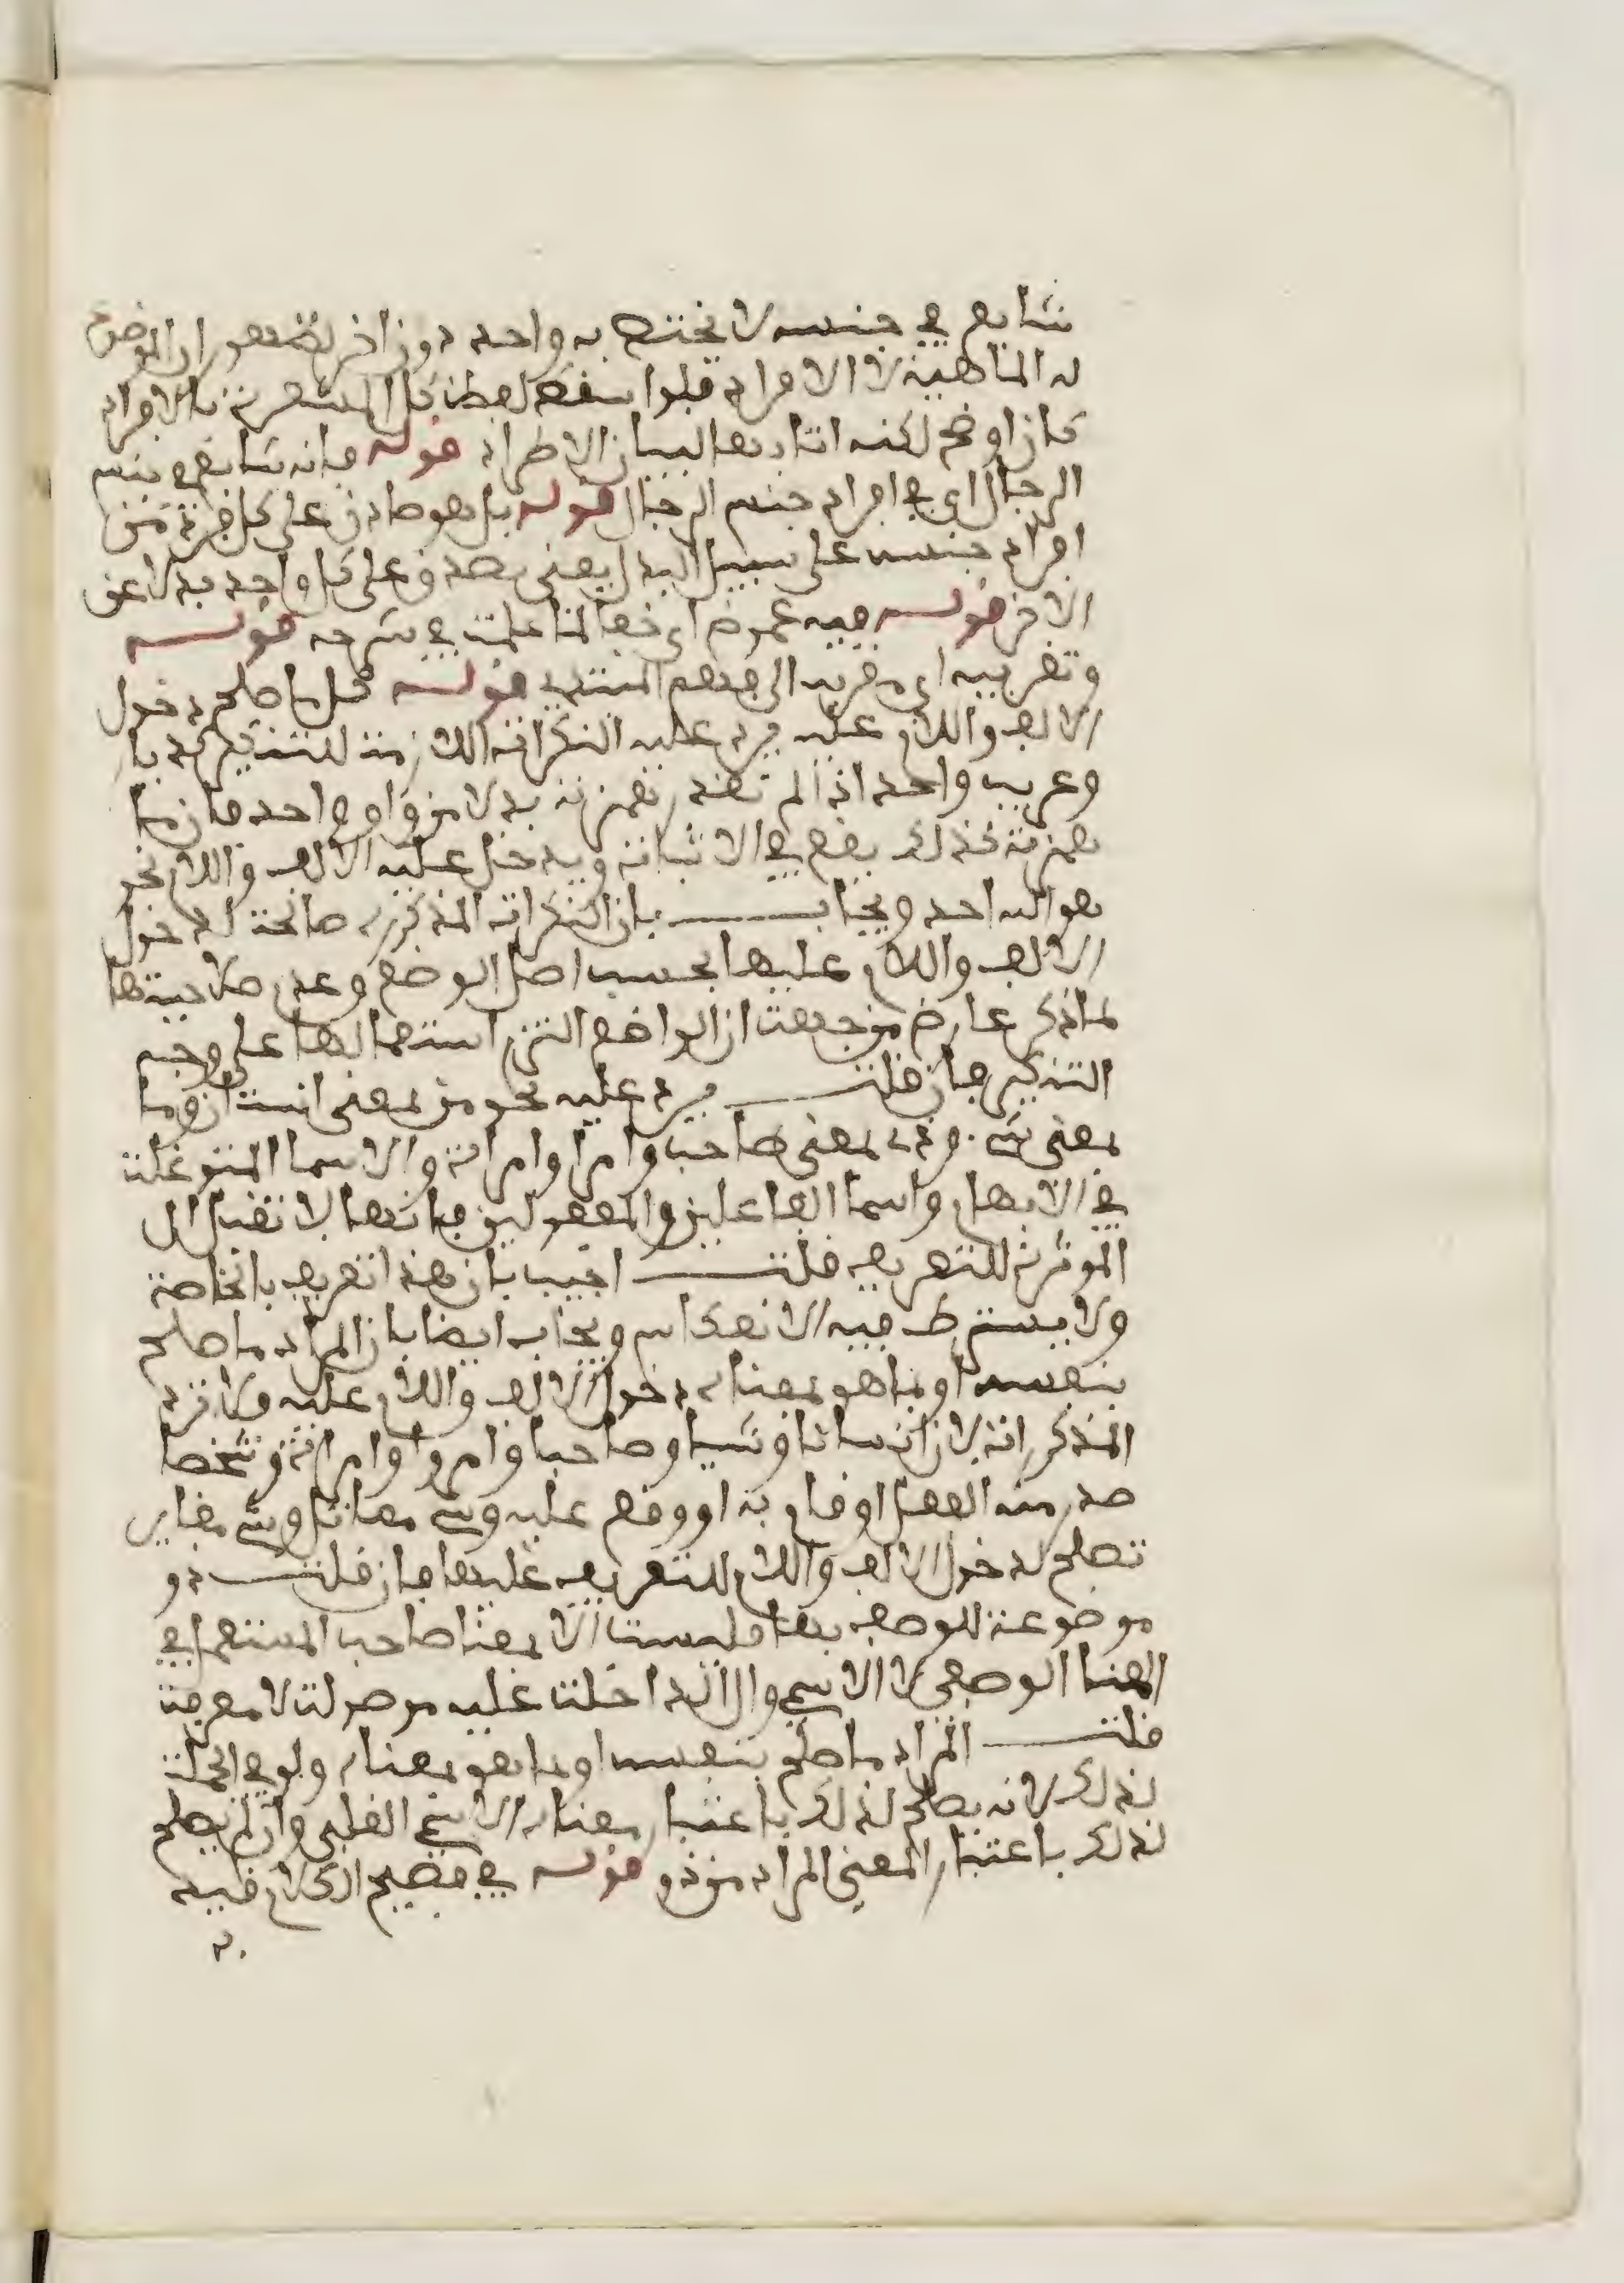 شايع في جنسه لا يختص به واحد دون اخر الموضوع
له الماهية لا الافراد فلو اسقط لفظ كل المشعرة بالافراد
كان اوضح لكنه اتا بها لبيان الاطراد قوله فانه شايع في جنس
الرجال اي في افراد جنس الرجال قوله بل هو صادق على كل فرد من
افراد جنسه على سبيل البدل يعني يصدق على كل واحد بدلا عن
الاخر قوله فيه غموض اي خفا لما علمت في شرحه قوله
وتقريبه اي مقربه الى فهم المبتدي قوله كل ما صلح دخول
الالف واللام عليه يرد عليه النكرات اللازمة للتنكير كديار
وعريب واحد اذا لم تقدر همزته بدلا من واو واحد فان ما
همزته كذلك يقع في الاثبات ويدخل عليه الالف واللام نحو
هو الله احد ويجاب بان النكرات المذكورة صالحة لدخول
الالف واللام عليها بحسب اصل الوضع وعدم صلاحيتها
لما ذكر عارض من جهة ان الواضع التزم استعمالها على وجه
التنكير فان قلت يرد عليه نحو من بمعنى انسان وما
بمعنى شي وذي بمعنى صاحب وامرا وامراة والاسما المتوغلة
في الابهام واسما الفاعلين والمفعولين فانها لا تقبل ال
الموثرة للتعريف قلت اجيب بان هذا تعريف بالخاصة
ولا يشترط فيه الانعكاس ويجاب ايضا بان المراد ما صلح
بنفسه او بما هو بمعناه دخول الالف واللام عليه ولا ترد
المذكورات لان انسانا وشيا وصاحبا وامروا وامراة وشخصا
صدر منه الفعل او قام به او وقع عليه وشي مماثل وشي مغاير
تصلح لدخول الالف واللام للتعريف عليها فان قلت ذو
موضوعة للوصف بها فليست الا بمعنا صاحب المستعمل في
المعنا الوصفي لا الاسمي وال الداخلة عليه موصولة لا معرفة
قلت المراد ما صلح بنفسه او بما هو بمعناه ولو في الجملة
لذلك لانه يصلح لذلك باعتبار معناه الاسمي الغلبي وان لم يصلح
لذلك باعتبار المعنى المراد من ذو قوله في فصيح الكلام قيد